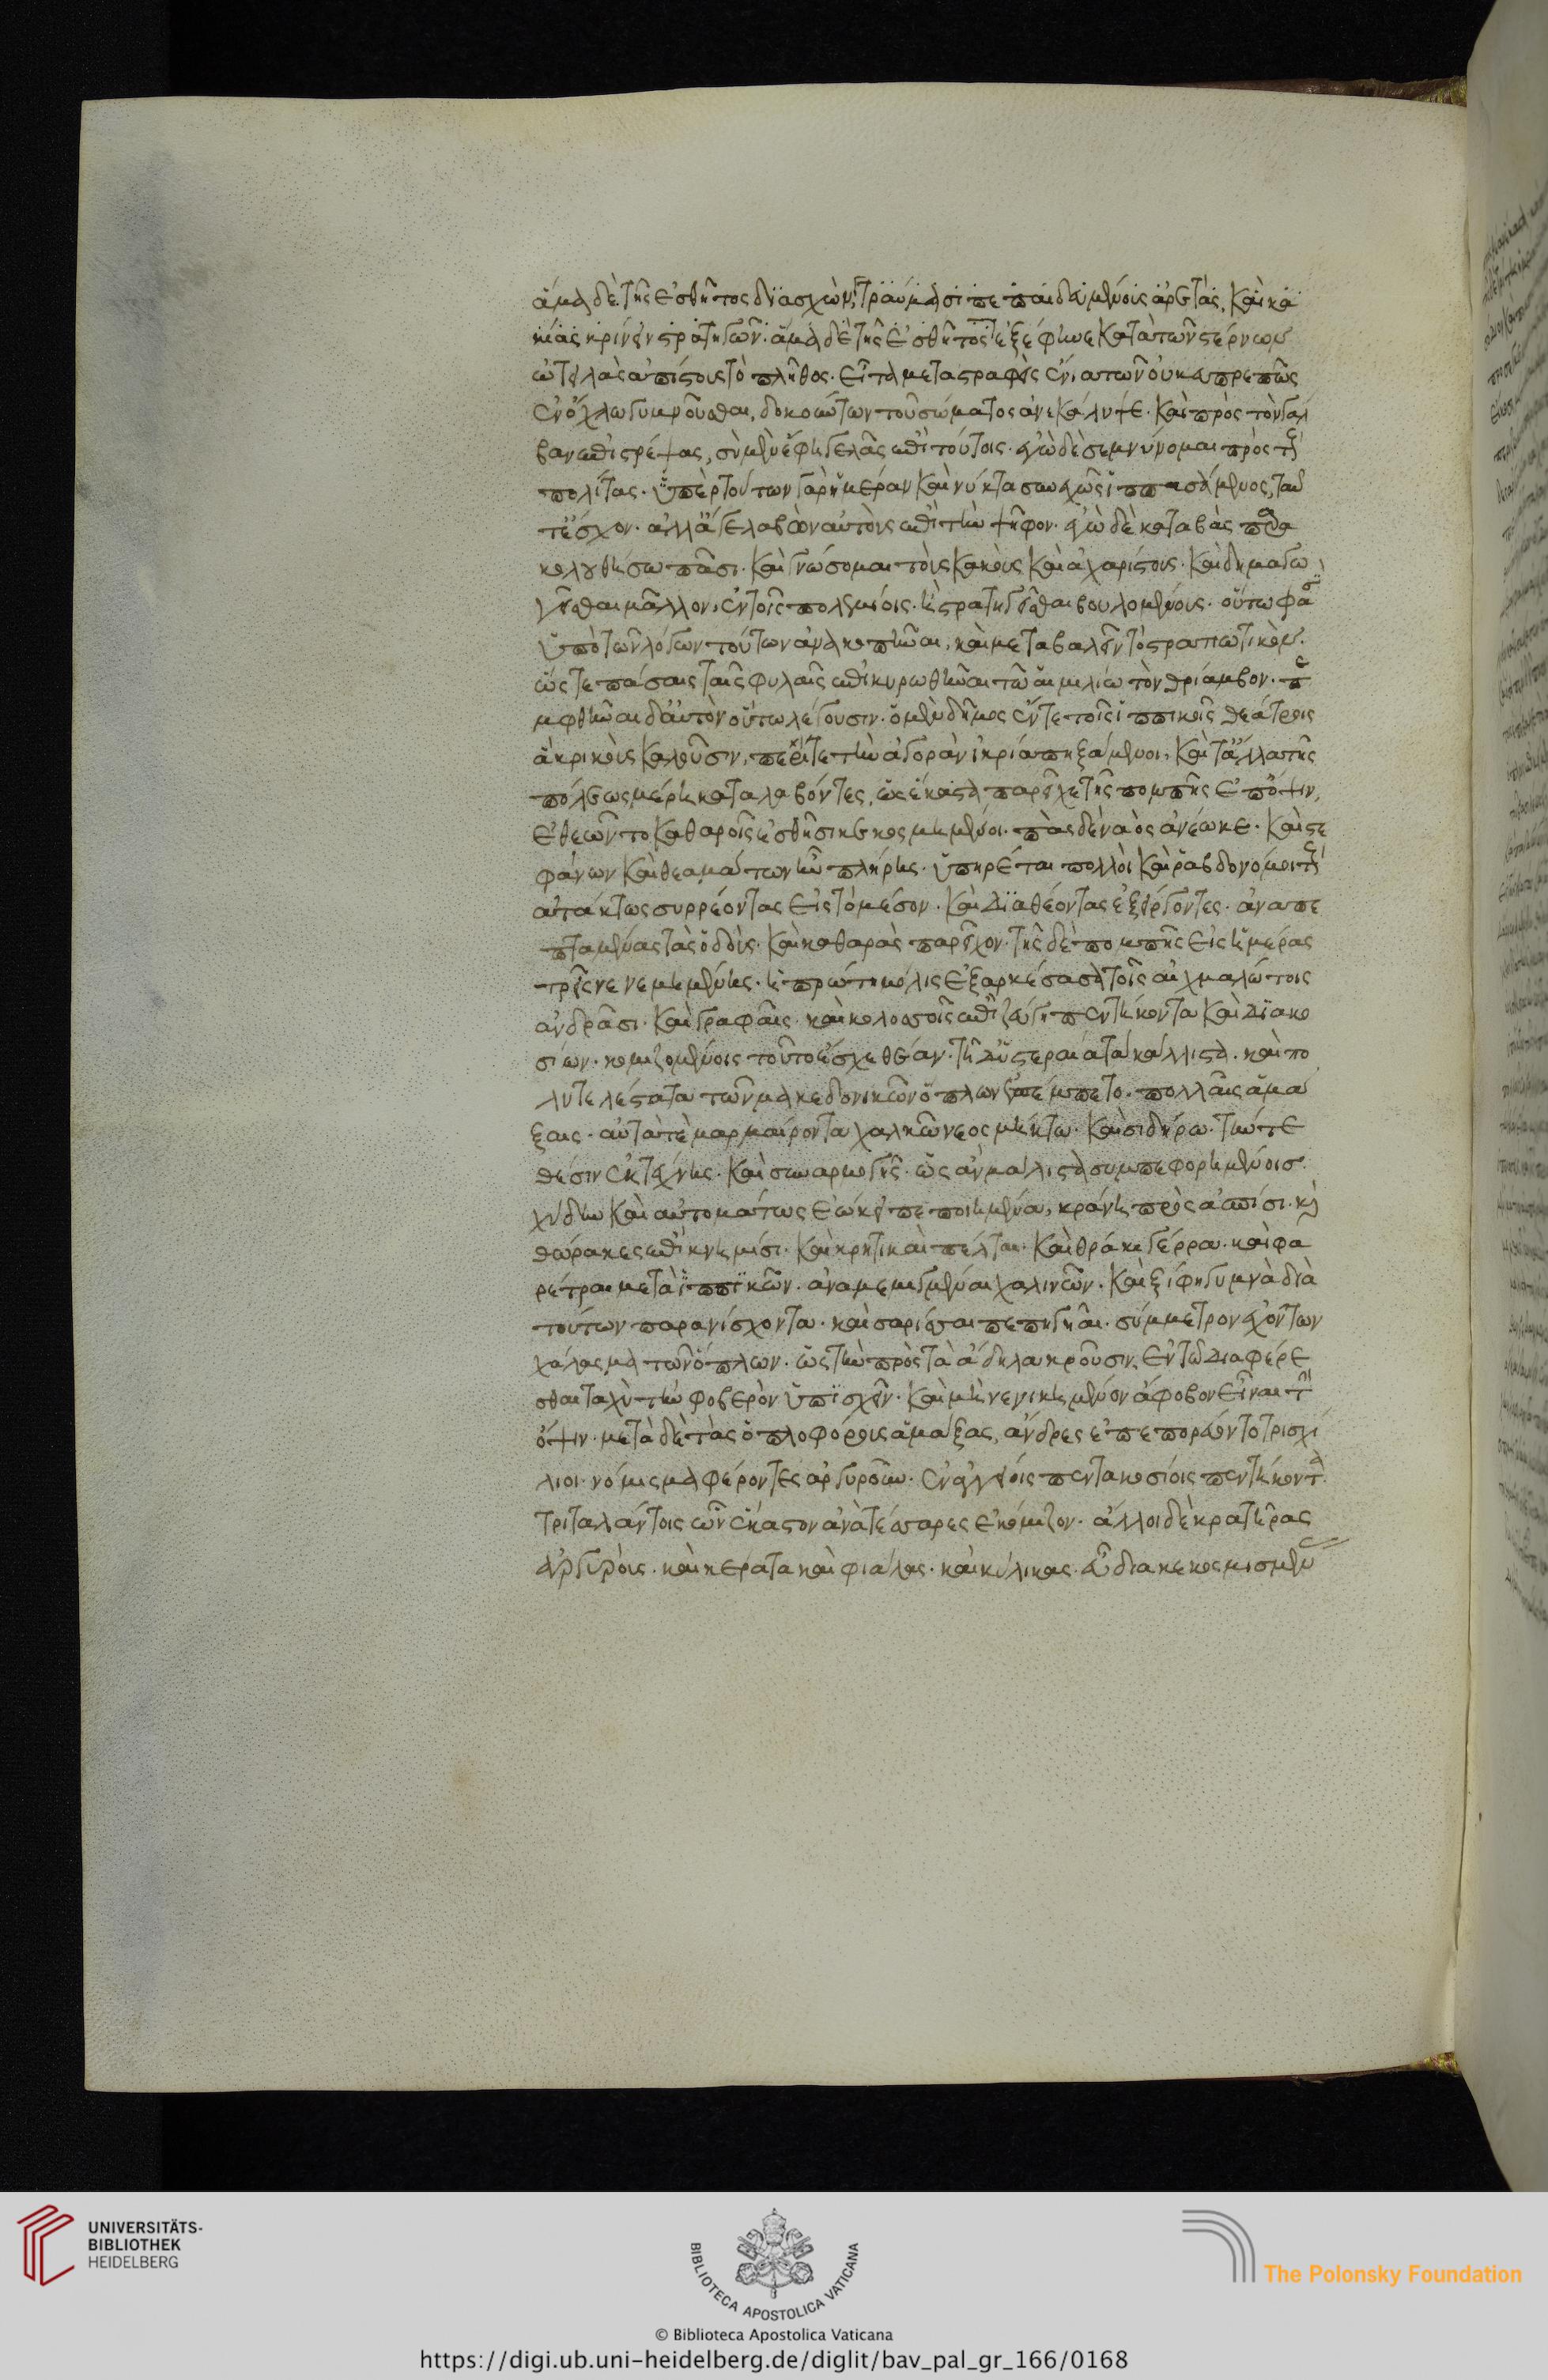 ἅμα δὲ τῆς ἐσθῆτος διασχὼν, τραύμασι πεπαιδευμένοις ἀρετὰς, καὶ κα
κίας κρίνειν στρατηγῶν. ἅμα δὲ τῆς ἐσθῆτος ἐξέφηνε κατὰ τῶν στέρνων
ὠτειλὰς ἀπίστους τὸ πλῆθος. εἶτα μεταστραφεὶς ἔνια τῶν οὐκ εὐπρεπῶς
ἐν ὄχλω γυμνοῦσθαι, δοκούντων τοῦ σώματος ἀνεκάλυψε. καὶ πρὸς τὸν γάλ
βαν ἐπιστρέψας, σὺ μὲν ἔφη γελᾶς ἐπὶ τούτοις. ἐγὼ δὲ σεμνύνομαι πρὸς τοὺς
πολίτας. ὑπὲρ τούτων γὰρ ἡμέραν καὶ νύκτα συνεχῶς ἱππασάμενος, ταῦ
τ' ἔσχον. ἀλλ' ἄγε λαβὼν αὐτοὺς ἐπὶ τὴν ψῆφον. ἐγὼ δὲ καταβὰς παρα
κολουθήσω πᾶσι. καὶ γνώσομαι τοὺς κακοὺς καὶ ἀχαρίστους. καὶ δημαγω
γεῖσθαι μᾶλλον, ἐν τοῖς πολεμίοις. ἢ στρατηγεῖσθαι βουλομένοις. οὕτω φασὶν
ὑπὸ τῶν λόγων τούτων ἀνακοπῆναι, καὶ μεταβαλεῖν τὸ στρατιωτικὸν.
ὥστε πάσαις ταῖς φυλαῖς ἐπικυρωθῆναι τῶ αἰμιλίω τὸν θρίαμβον. πε
μφθῆναι δ' αὐτὸν οὕτω λέγουσιν. ὁ μὲν δῆμος ἔν τε τοῖς ἱππικοῖς θεάτροις
ἃ κρικοὺς καλοῦσιν, περί τε τὴν ἀγορὰν ἰκρία πηξάμενοι, καὶ τἄλλα τῆς
πόλεως μέρη καταλαβόντες, ὡς ἕκαστα παρεῖχε τῆς πομπῆς ἐπόψιν,
ἐθεῶντο καθαροῖς ἐσθῆσι κεκοσμημένοι. πᾶς δὲ ναὸς ἀνέωκε. καὶ στε
φάνων καὶ θεαμάτων ἦν πλήρης. ὑπηρέται πολλοὶ καὶ ῥαβδονόμοι τοὺς
ἀτάκτως συρρέοντας εἰς τὸ μέσον. καὶ διαθέοντας ἐξείργοντες. ἀναπε
πταμένας τὰς ὁδοὺς. καὶ καθαρὰς παρεῖχον. τῆς δὲ πομπῆς εἰς ἡμέρας
τρεῖς νενεμημένης. ἡ πρώτη μόλις ἐξαρκέσασα τοῖς αἰχμαλώτοις
ἀνδρᾶσι. καὶ γραφαῖς. καὶ κολοσσοῖς ἐπὶ ζεύγη πεντήκοντα καὶ διακο
σίων. κομιζομένοις τοῦτο ἔσχε θέαν. τῆ δ' ὑστεραία τὰ κάλλιστα. καὶ πο
λυτελέστατα τῶν μακεδονικῶν ὅπλων ἐπέμπετο. πολλαῖς ἁμά
ξαις. αὐτά τε μαρμαίροντα χαλκῶ νεοσμήκτω. καὶ σιδήρω. τήν τε
θέσιν ἐκ τέχνης. καὶ συναρμογῆς. ὡς ἂν μάλιστα συμπεφορημένοις
χύδην καὶ αὐτομάτως ἐώκει πεποιημένα, κράνη πρὸς ἀσπίσι. καὶ
θώρακες ἐπὶ κνημίσι. καὶ κρητικαὶ πέλται. καὶ θράκια γέρρα. καὶ φα
ρέτραι μετὰ ἱππικῶν. ἀναμεμιγμέναι χαλινῶν. καὶ ξίφη γυμνὰ διὰ
τούτων παρανίσχοντα. καὶ σαρίσσαι πεπηγῆαι. σύμμετρον ἐχόντων
χάλασμα τῶν ὅπλων. ὥς τὴν πρὸς τὰ ἄδηλα κροῦσιν. ἐν τῶ διαφέρε
σθαι ταχὺ τὴν φοβερὸν ὑπισχεῖν. καὶ μὴ νενικημένον ἄφοβον εἶναι τὴν
ὄψιν. μετὰ δὲ τὰς ὁπλοφόρους ἁμάξας, ἄνδρες ἐπεπορεύοντο τρισχί
λιοι. νόμισμα φέροντες ἀργυροῦν. ἐν ἀγγείοις πεντακοσίοις πεντήκοντα
τριταλάντοις ὧν ἕκαστον ἀνὰ τέσσαρες ἐκόμιζον. ἄλλοι δὲ κρατῆρας
ἀργυροὺς. καὶ κέρατα καὶ φιάλας. καὶ κύλικας. εὖ διακεκοσμισμέν
UNIVERSITÄTS-
BIBLIOTHEK
HEIDELBERG
BIBLIOTECA APOSTOLICA VATICANA
The Polonsky Foundation
© Biblioteca Apostolica Vaticana
https://digi.ub.uni-heidelberg.de/diglit/bav_pal_gr_166/0168